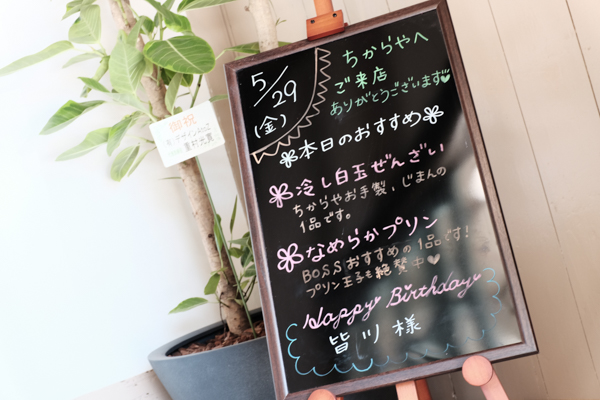 5/29
(金)
ちからやへ
ご来店
ありがとうございます♥
本日のおすすめ
冷し白玉ぜんざい
ちからやお手製、じまんの
1品です。
なめらかプリン
BOSSおすすめの1品です!
プリン王子も絶賛中♥
Happy Birthday
皆川様
御祝